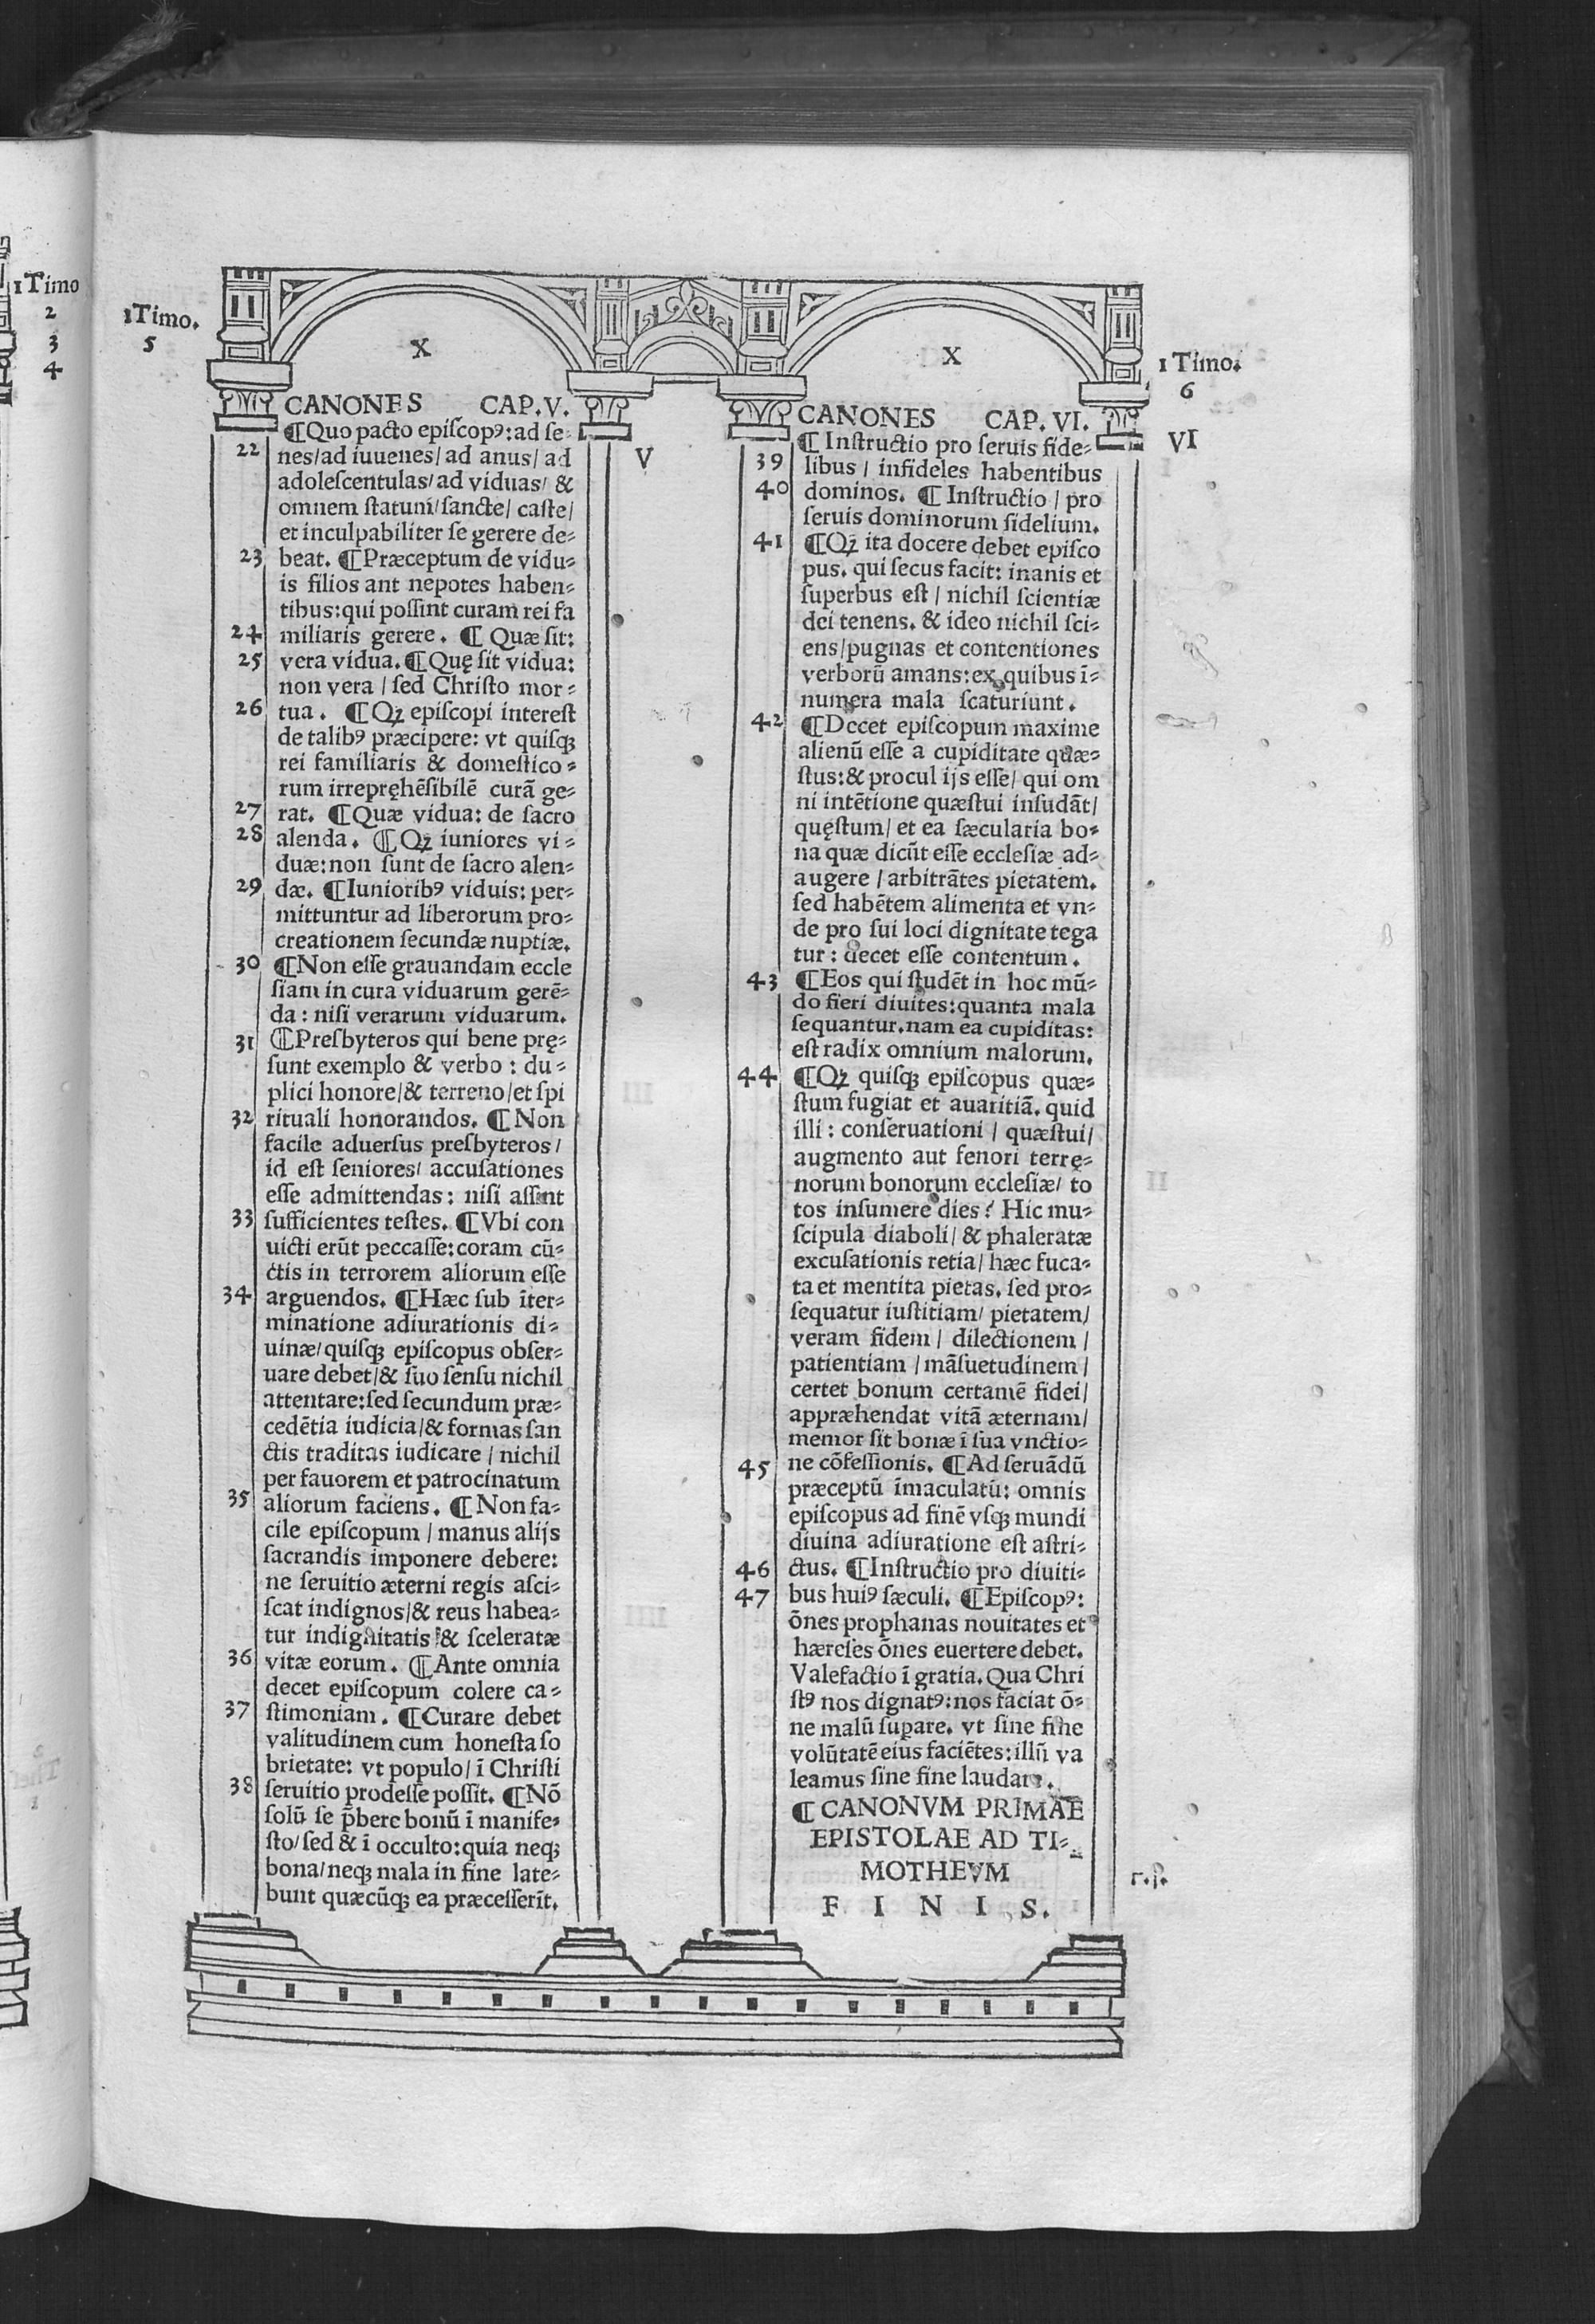 1Timo
2
3
4
1Timo.
5
X
CANONES CAP.V.
V
¶Quo pacto episcopꝰ:ad se-
22 nes/ad iuuenes/ad anus/ad
adolescentulas/ad viduas/ &
omnem statum/sancte/ caste/
et inculpabiliter se gerere de-
23 beat. ¶Præceptum de vidu-
is filios ant nepotes haben-
tibus:qui possint curam rei fa
24 miliaris gerere. ¶ Quæ sit:
25 vera vidua. ¶Quę sit vidua:
non vera / sed Christo mor-
26 tua. ¶Qꝫ episcopi interest
de talibꝰ præcipere: vt quisqꝫ
rei familiaris & domestico-
rum irrepręhēsibilē curā ge-
27 rat. ¶Quæ vidua: de sacro
28 alenda. ¶Qꝫ iuniores vi-
duæ:non sunt de sacro alen-
29 dæ. ¶Iunioribꝰ viduis: per-
mittuntur ad liberorum pro-
creationem secundæ nuptiæ.
30 ¶Non esse grauandam eccle
siam in cura viduarum gerē-
da : nisi verarum viduarum.
31 ¶Presbyteros qui bene prę-
sunt exemplo & verbo : du-
plici honore/& terreno/et spi
32 rituali honorandos. ¶Non
facile aduersus presbyteros/
id est seniores/ accusationes
esse admittendas: nisi assint
33 sufficientes testes. ¶Vbi con
uicti erūt peccasse:coram cū-
ctis in terrorem aliorum esse
34 arguendos. ¶Hæc sub īter-
minatione adiurationis di-
uinæ/quisqꝫ episcopus obser-
uare debet/& suo sensu nichil
attentare:sed secundum præ-
cedētia iudicia/& formas san
ctis traditas iudicare / nichil
per fauorem et patrocinatum
35 aliorum faciens. ¶Non fa-
cile episcopum / manus alijs
sacrandis imponere debere:
ne seruitio æterni regis asci-
scat indignos/& reus habea-
tur indignitatis & sceleratæ
36 vitæ eorum. ¶Ante omnia
decet episcopum colere ca-
37 stimoniam. ¶Curare debet
valitudinem cum honesta so
brietate: vt populo/ ī Christi
38 seruitio prodesse possit. ¶Nō
solū se p̄bere bonū ī manife-
sto/sed & ī occulto:quia neqꝫ
bona/neqꝫ mala in fine late-
bunt quæcūqꝫ ea præcesserīt.
X
1 Timo.
6
CANONES CAP. VI.
VI
¶ Instructio pro seruis fide-
39 libus / infideles habentibus
40 dominos. ¶ Instructio / pro
seruis dominorum fidelium.
41 ¶Qꝫ ita docere debet episco
pus. qui secus facit: inanis et
superbus est / nichil scientiæ
dei tenens. & ideo nichil sci-
ens/pugnas et contentiones
verborū amans:ex quibus ī-
numera mala scaturiunt.
42 ¶Decet episcopum maxime
alienū esse a cupiditate quæ-
stus:& procul ijs esse/ qui om
ni intētione quæstui insudāt/
quęstum/ et ea sæcularia bo-
na quæ dicūt esse ecclesiæ ad-
augere / arbitrātes pietatem.
sed habētem alimenta et vn-
de pro sui loci dignitate tega
tur : decet esse contentum.
43 ¶Eos qui studēt in hoc mū-
do fieri diuites:quanta mala
sequantur.nam ea cupiditas:
est radix omnium malorum.
44 ¶Qꝫ quisqꝫ episcopus quæ-
stum fugiat et auaritiā. quid
illi : conseruationi / quæstui/
augmento aut fenori terrę-
norum bonorum ecclesiæ/ to
tos insumere dies? Hic mu-
scipula diaboli/ & phaleratæ
excusationis retia/ hæc fuca-
ta et mentita pietas. sed pro-
sequatur iustitiam/ pietatem/
veram fidem / dilectionem /
patientiam / māsuetudinem/
certet bonum certamē fidei/
appræhendat vitā æternam/
memor sit bonæ ī sua vnctio-
45 ne cōfessionis. ¶Ad seruādū
præceptū īmaculatū: omnis
episcopus ad finē vsqꝫ mundi
diuina adiuratione est astri-
46 ctus. ¶Instructio pro diuiti-
47 bus huiꝰ sæculi. ¶Episcopꝰ:
ōnes prophanas nouitates et
hæreses ōnes euertere debet.
Valefactio ī gratia. Qua Chri
stꝰ nos dignatꝰ:nos faciat ō-
ne malū supare. vt sine fine
volūtatē eius faciētes:illū va
leamus sine fine laudare.
¶ CANONVM PRIMAE
EPISTOLAE AD TI-
MOTHEVM
F I N I S.